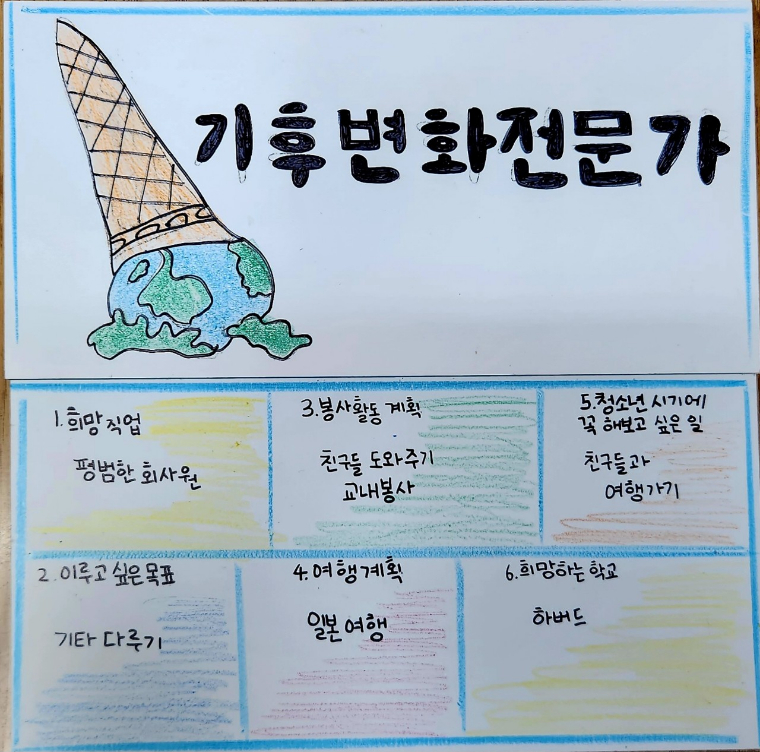 기후변화전문가
1.희망직업
평범한 회사원
2.이루고 싶은목표
기타 다루기
3.봉사활동 계획
친구들 도와주기
교내봉사
4.여행계획
일본여행
5.청소년 시기에
꼭 해보고 싶은 일
친구들과
여행가기
6.희망하는 학교
하버드